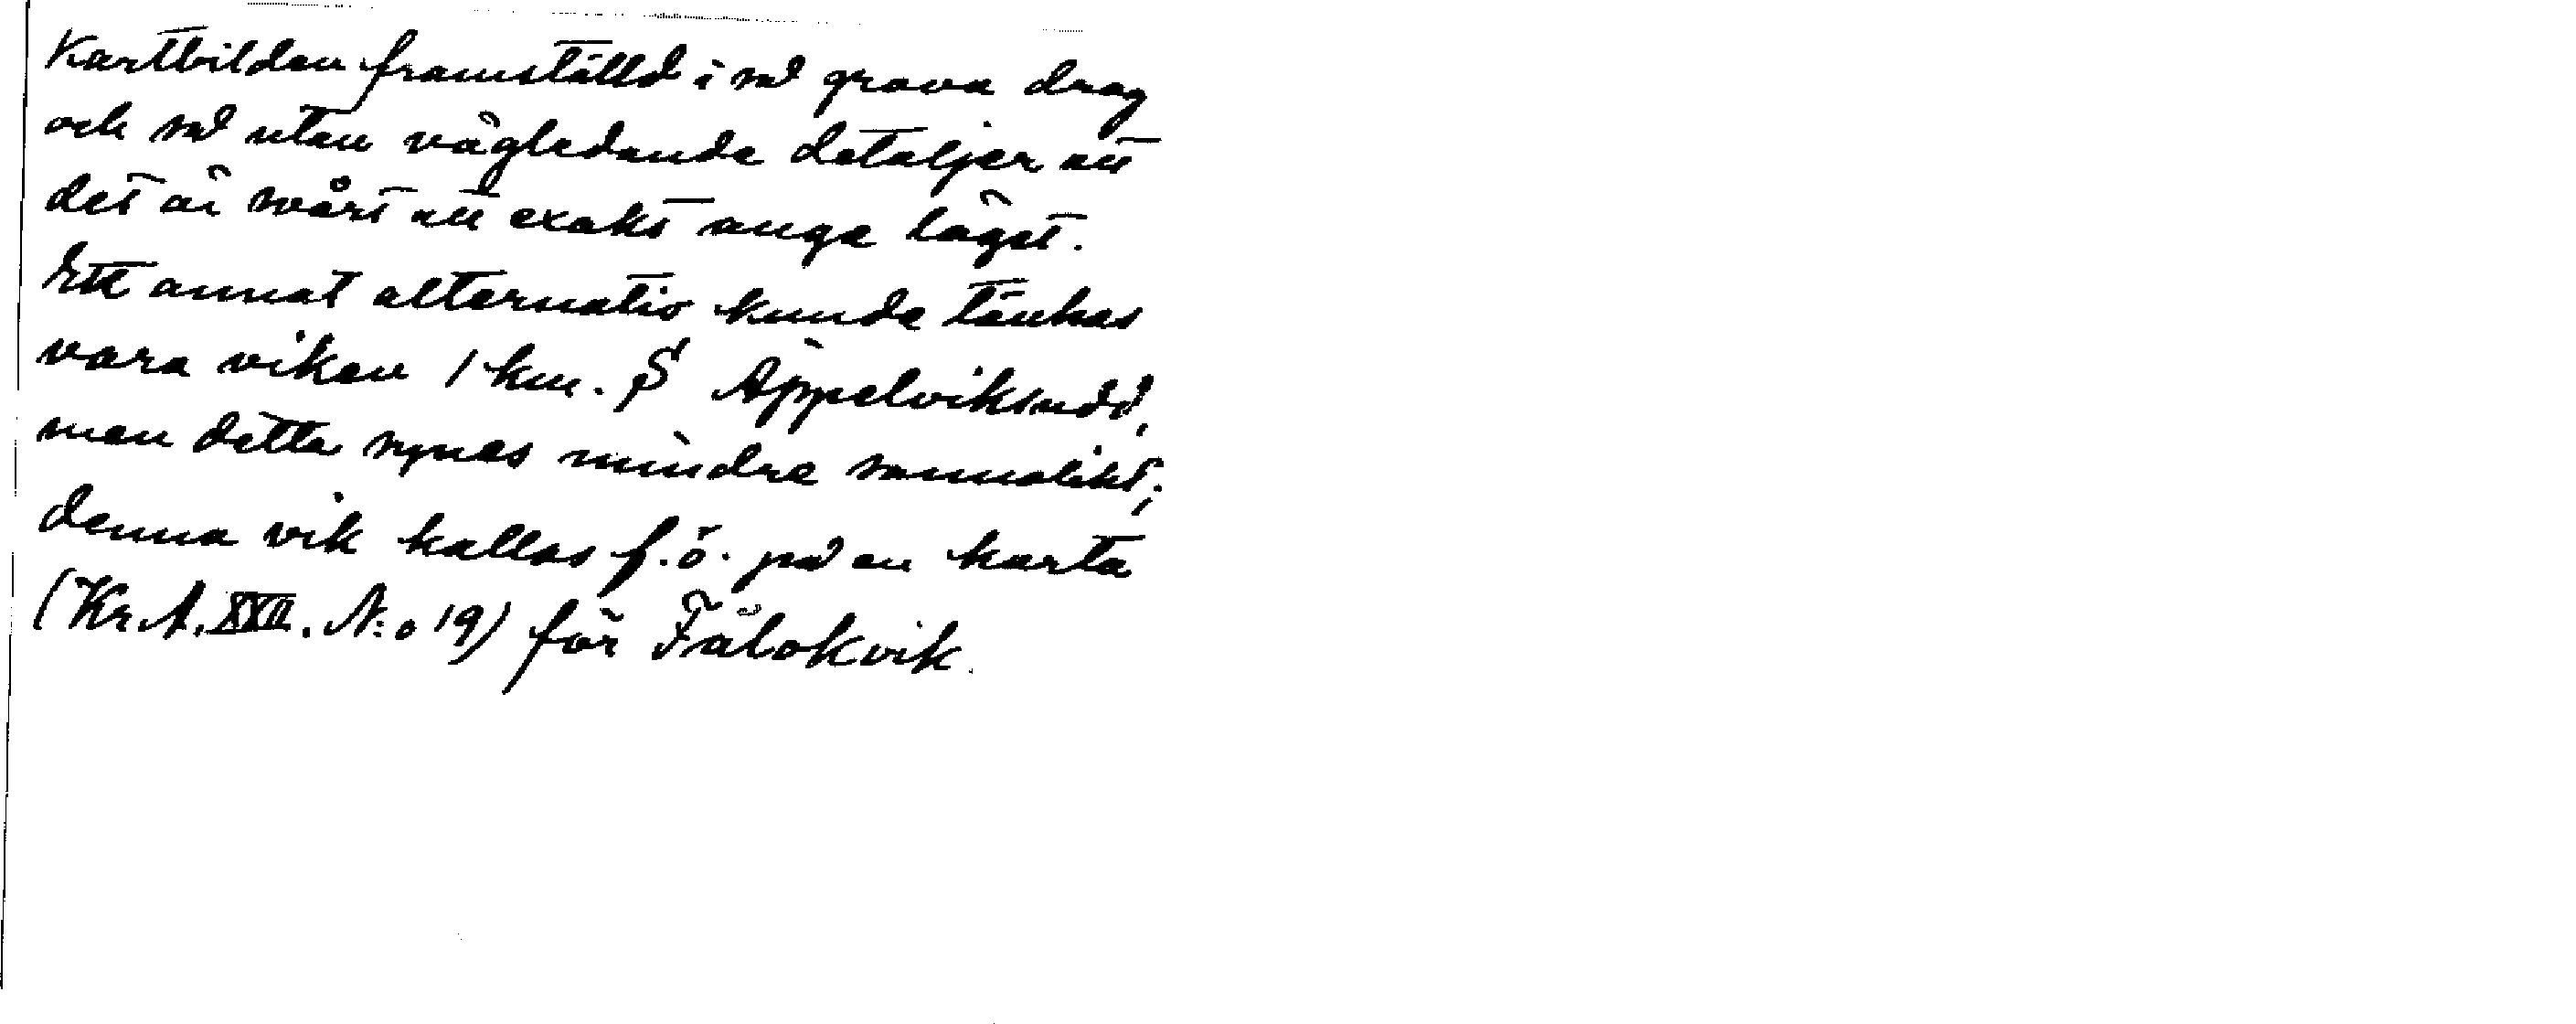 Kartbilden framställd i så grova drag
och så utan vägledande detaljer att
det är svårt att exakt ange läget.
Ett annat alternativ kunde tänkas
vara viken 1 km. S Äppelviksudd,
men detta synes mindre sannolikt;
denna vik kallas f.ö. på en karta
(Kr.A. XXII. N:o 19) för Fälokvik.